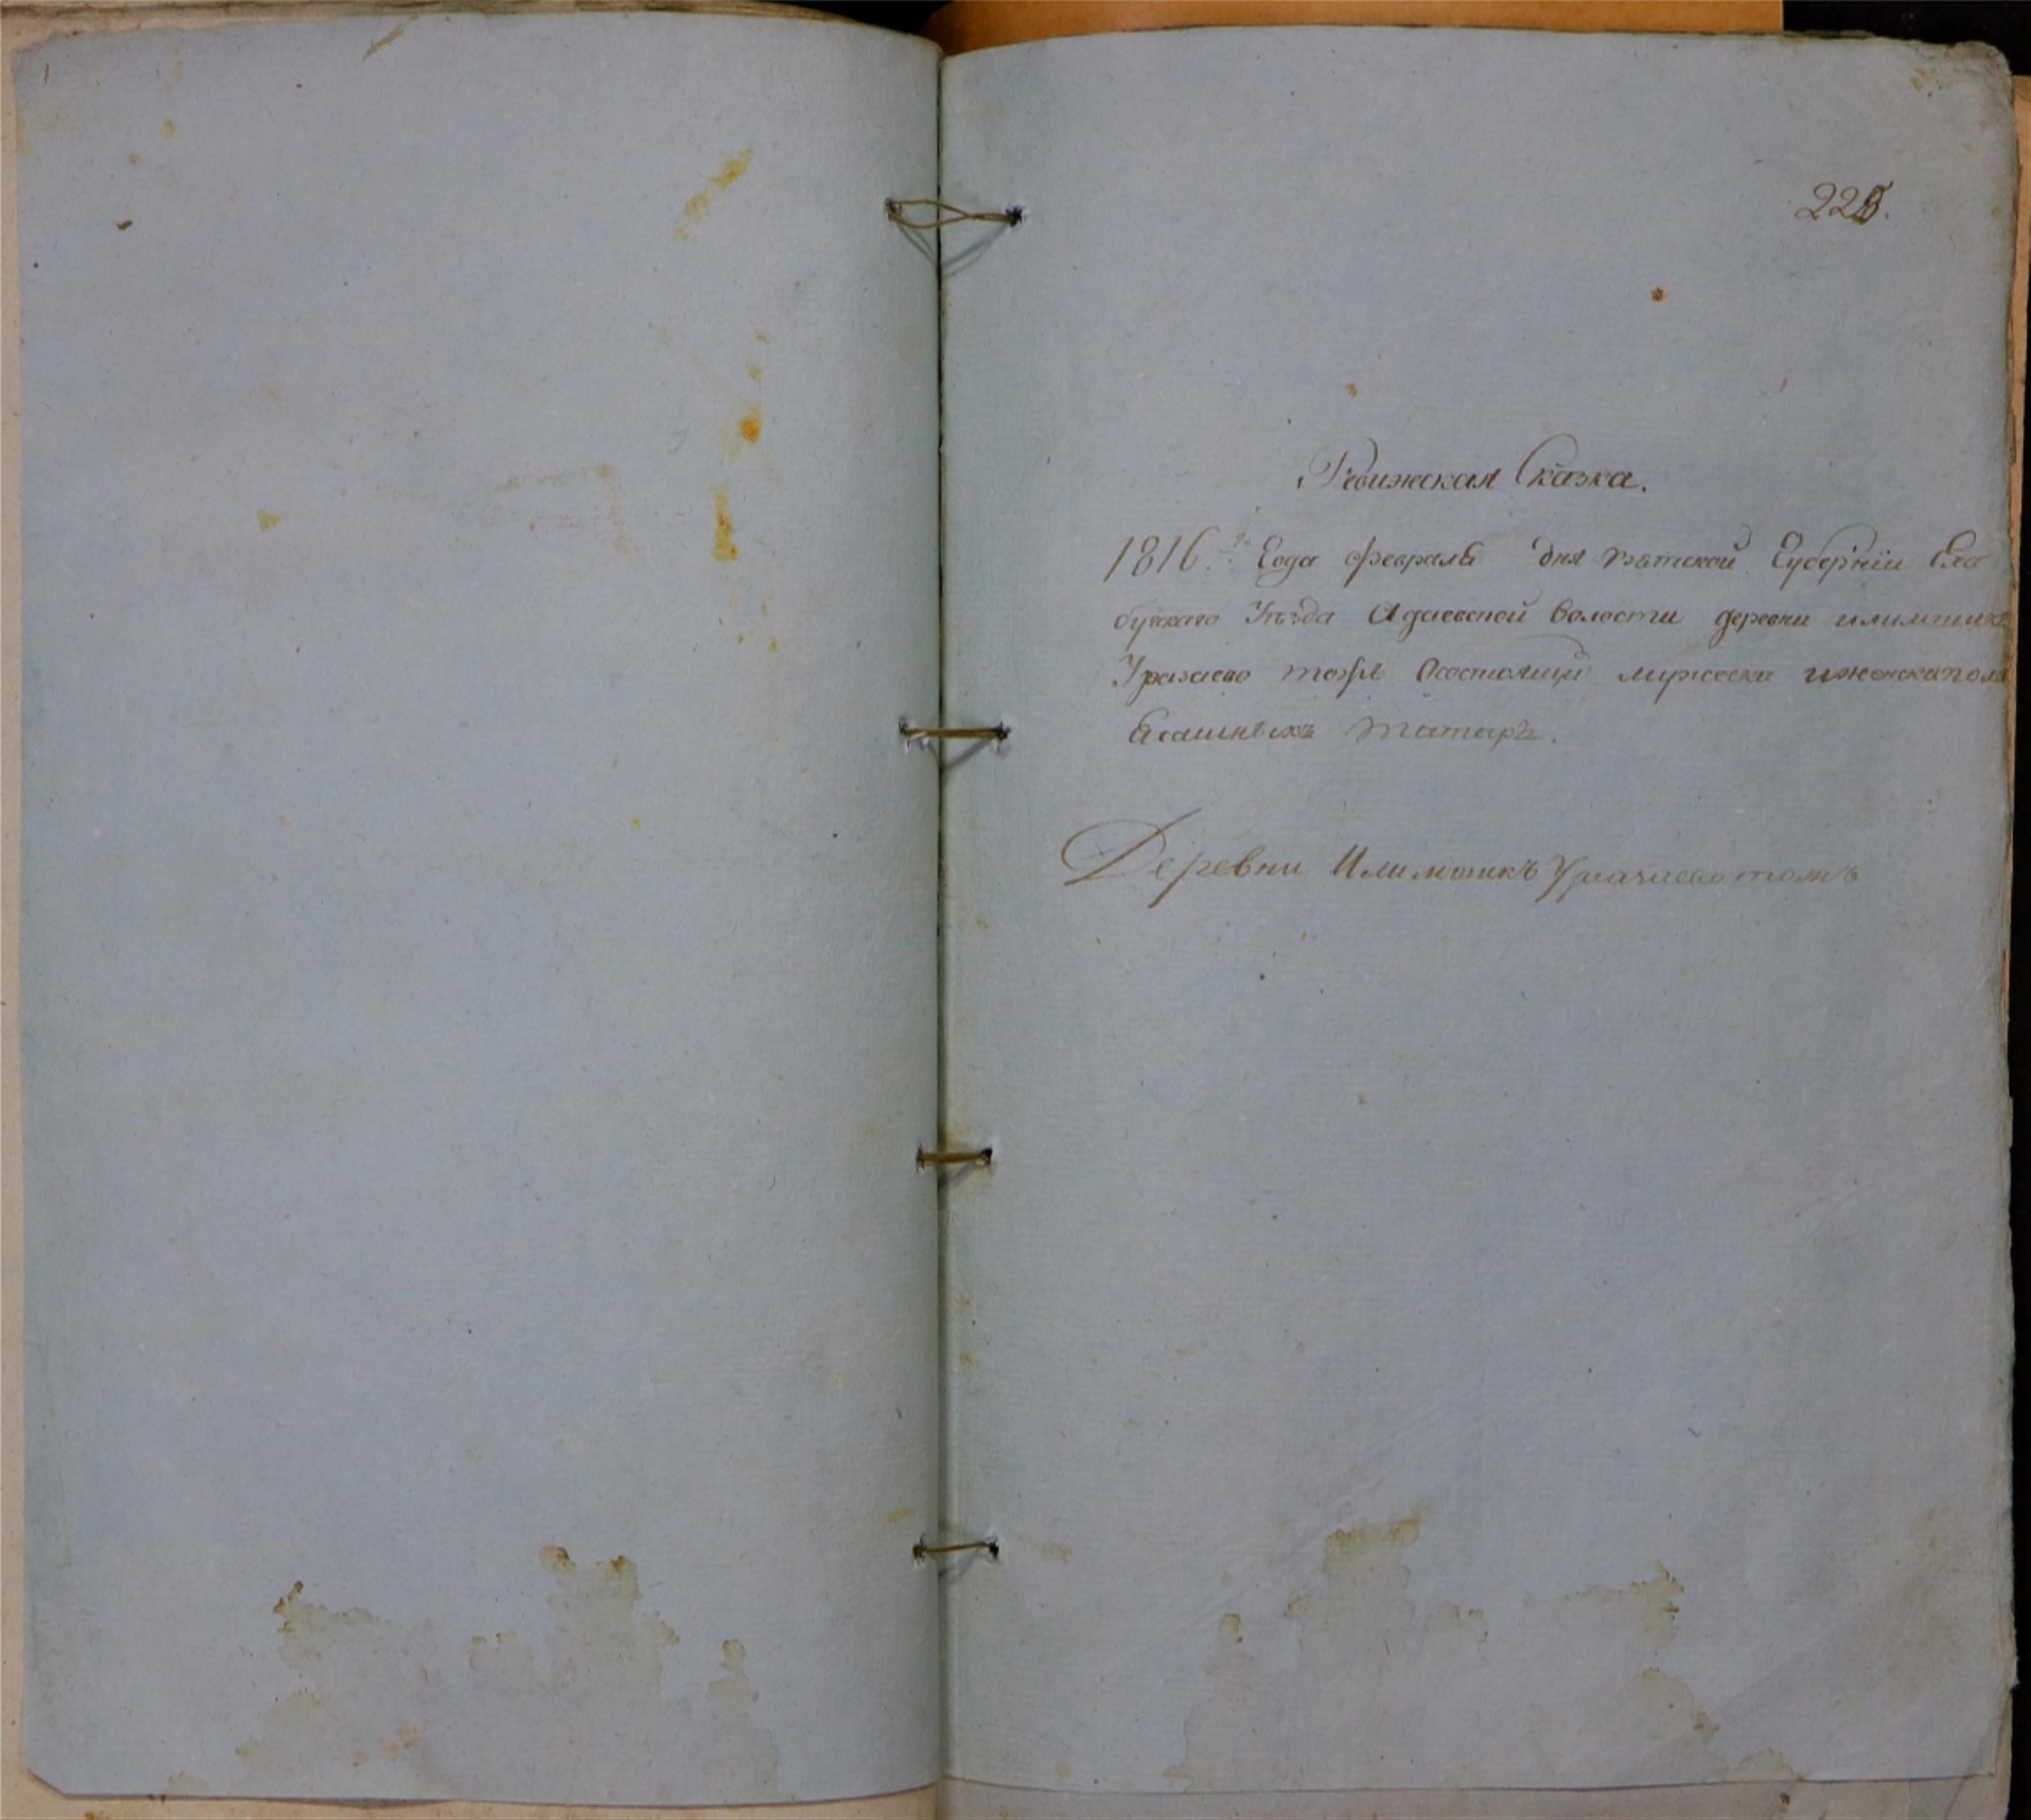 225.
Ревижская Сказка.
1816.го Года февраля дня вятской Губернïи Ела
буского Уѣзда Адаевской волости деревни илимшикъ
Уразаево тожъ Осостоящи мужеска иженска пола
Ясашныхъ татаръ.
Деревни Илимшикъ Уразаево тожъ